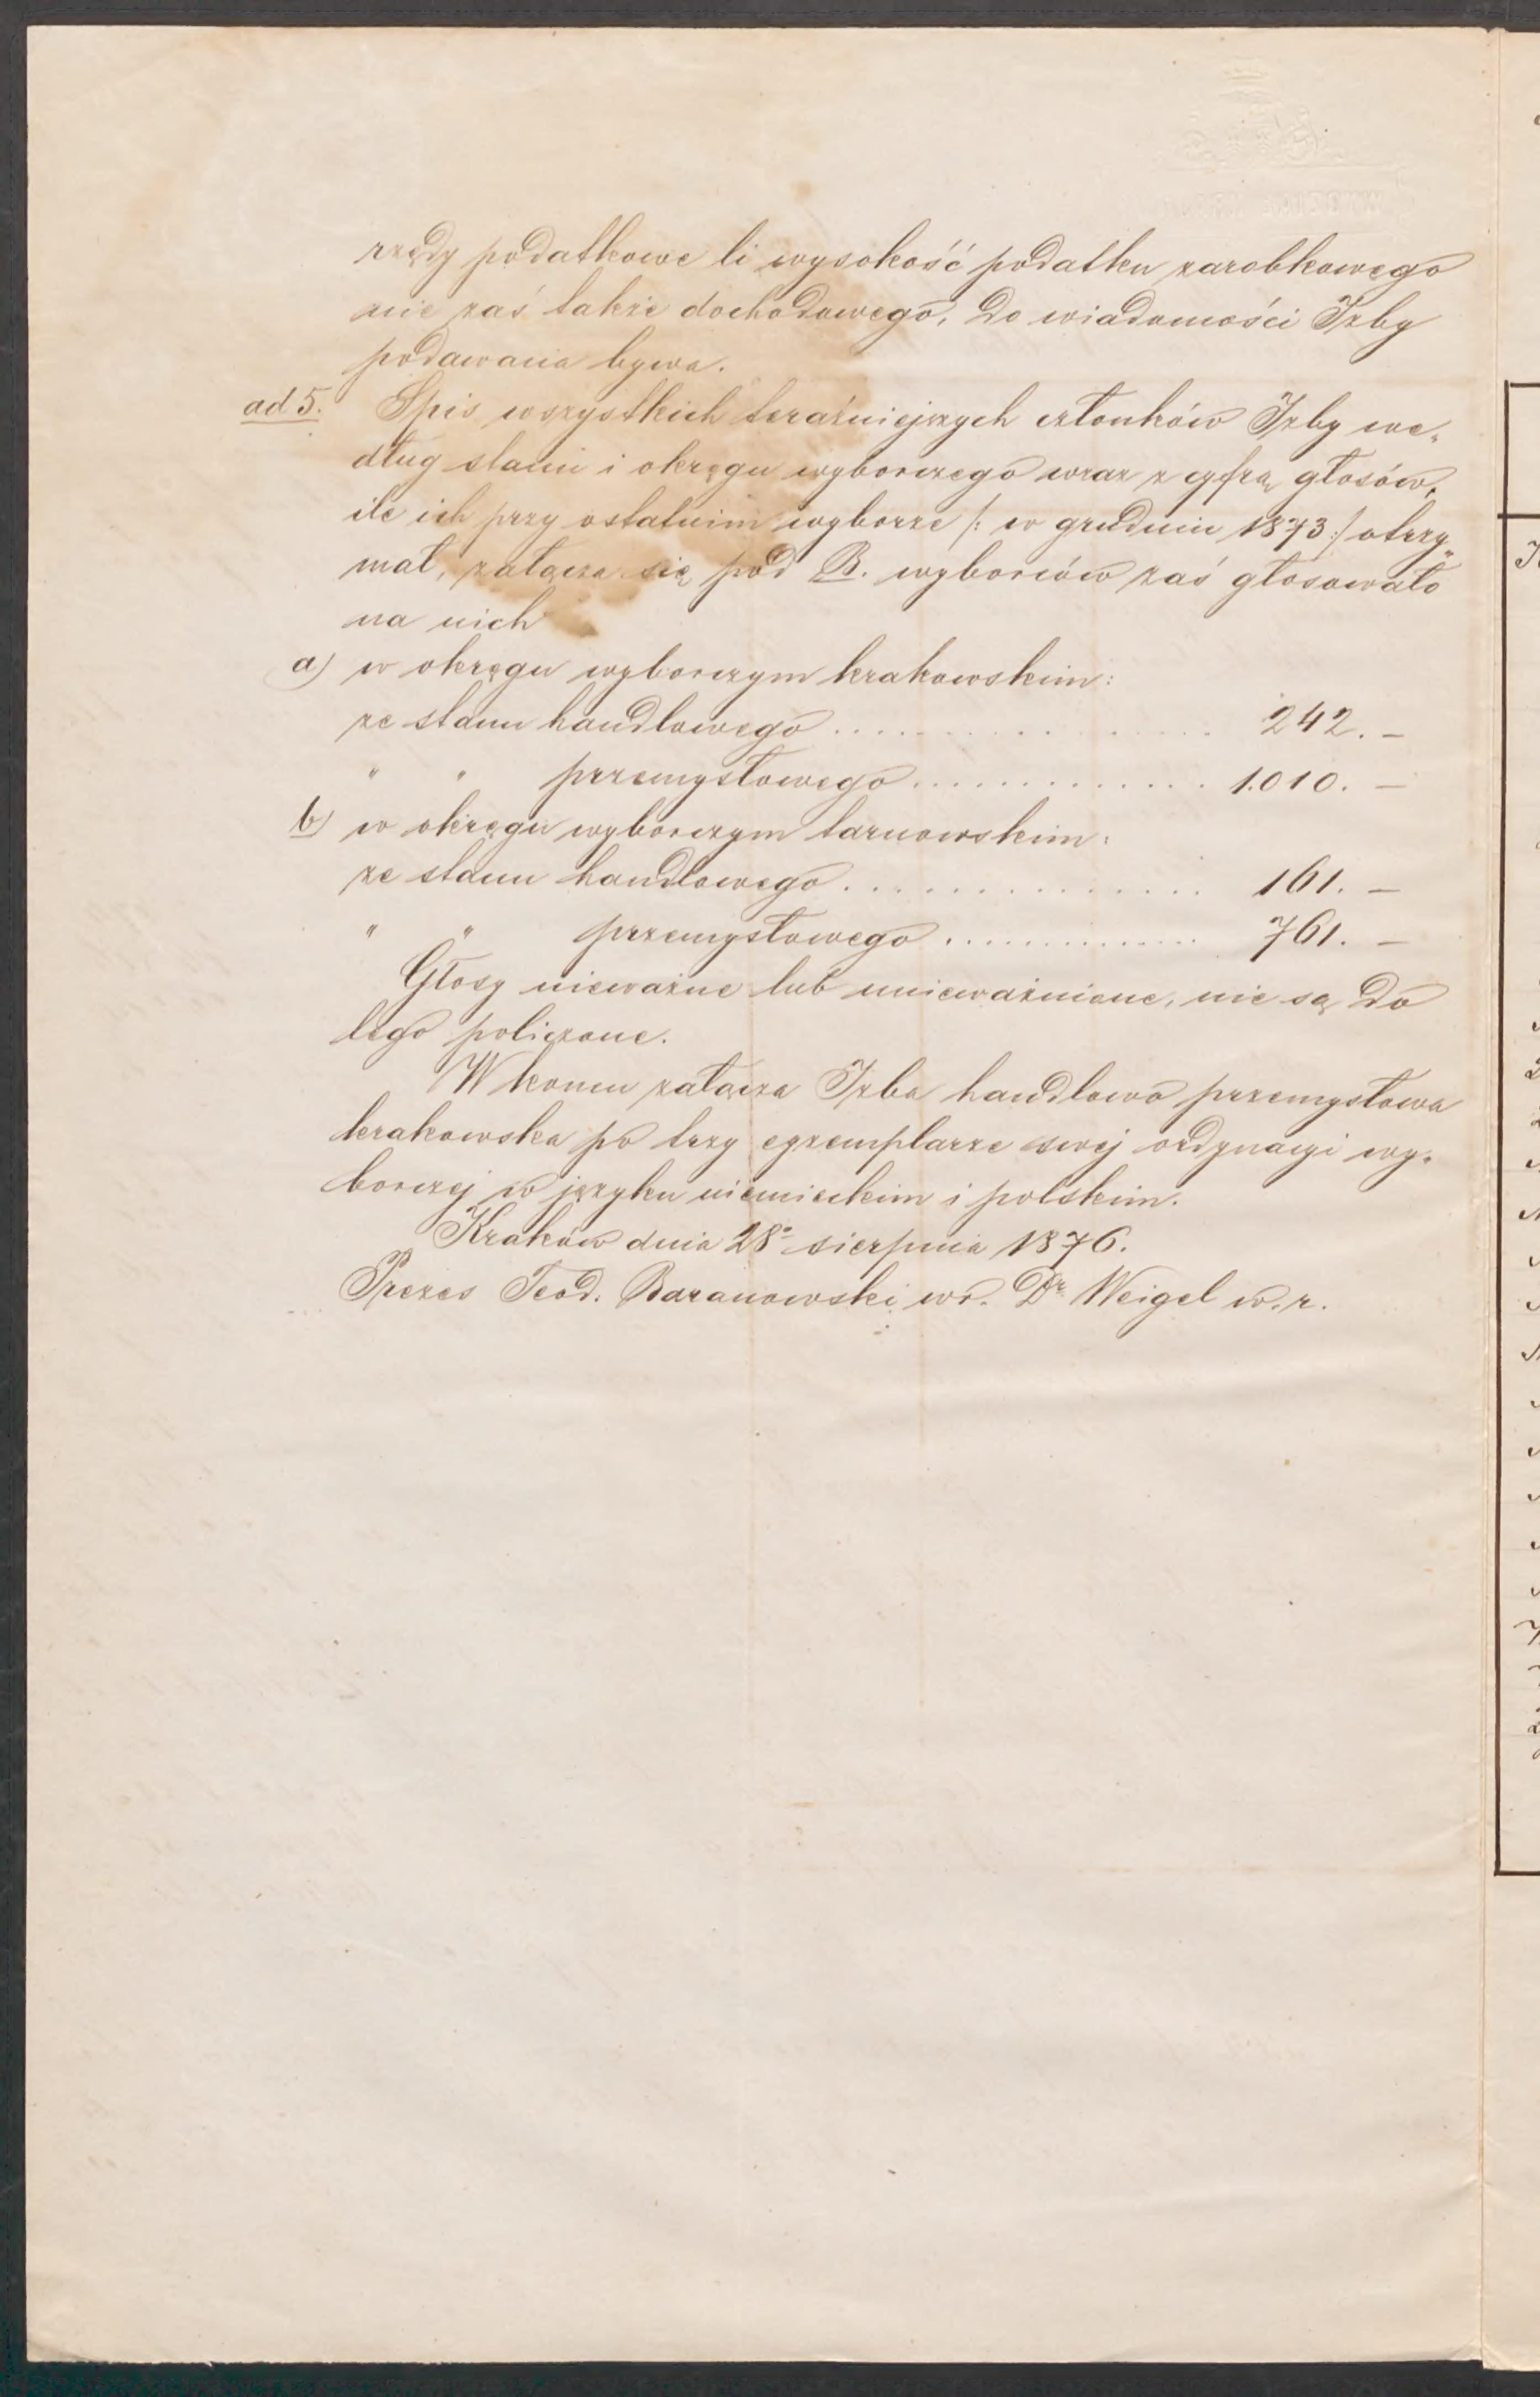 rzędy podatkowe li wysokość podatku zarobkowego
nie zaś także dochodowego, do wiadomości Izby
podawana bywa.
ad 5. Spis wszystkich teraźniejszych członków Izby we„
dług stanu i okręgu wyborczego wraz z cyfrą głosów,
ile ich przy ostatnim wyborze /: w grudniu 1873 :/ otrzy„
mał, załącza się pod B. wyborców zaś głosowało
na nich
a) w okręgu wyborczym krakowskim:
ze stanu handlowego . . . . . . . . . . . . . . . 242. –
" " przemysłowego . . . . . . . . . . . . . 1.010. –
b) w okręgu wyborczym tarnowskim:
ze stanu handlowego . . . . . . . . . . . . . . . 161. –
" " przemysłowego . . . . . . . . . . . . . . 761. –
Głosy nieważne lub unieważnione, nie są do
tego policzone.
W końcu załącza Izba handlowo przemysłowa
krakowska po trzy egzemplarze swej ordynacyi wy„
borczej w języku niemieckim i polskim.
Kraków dnia 28o sierpnia 1876.
Prezes Teod. Baranowski wr. Dr Weigel w. r.